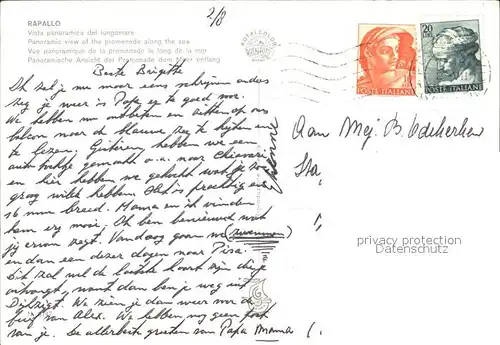 RAPALLO
Vista panoramica del lungomare
Panoramic view of the promenade along the sea
Vue panoramique de la promenade le long de la mer
Panoramische Ansicht der Promenade dem Meer entlang
2/8
Beste Brigitte
Ik zal je nu maar eens schrijven anders
zeg je weer is Papa er te goed voor.
We hebben nu ontbeten en zitten op ons
balcon naar de blauwe zee te kijken en
te lezen. Gisteren hebben we een
autotochtje gemaakt o.a. naar Chiavari
en hier hebben we gekocht wat je zo
graag wilde hebben. Het is prachtig en
16 mm breed. Mama en ik vinden
hem erg mooi. Ik ben benieuwd wat
jij ervan zegt. Vandaag gaan we zwemmen
en dan een dezer dagen naar Pisa.
Dit zal wel de laatste kaart zijn die je
ontvangt, want dan ben je weg uit
Delfzijl. We zien je dan weer met de
van Alex. We hebben nog geen post
van je. De allerbeste groeten van Papa Mama
Aan Mej B.
POSTE ITALIANE
20
POSTE ITALIANE
privacy protection
Datenschutz